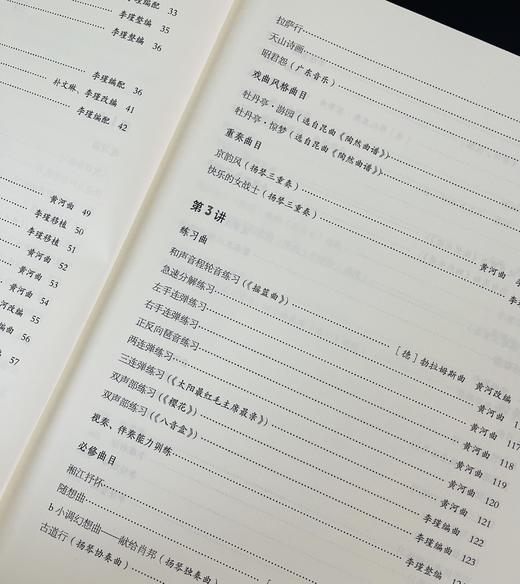 李瑾编配 33
李瑾整编 35
李瑾整编 36
李瑾编配 36
朴文琳、李瑾改编 41
李瑾编配 42
黄河曲 49
李瑾移植 50
李瑾移植 51
黄河曲 52
黄河曲 53
黄河曲 54
河改编 55
河曲 56
57
拉萨行
天山诗画
昭君怨(广东音乐)
戏曲风格曲目
牡丹亭·游园(选自昆曲《陶然曲谱》)
牡丹亭·惊梦(选自昆曲《陶然曲谱》)
重奏曲目
京韵风(扬琴三重奏)
快乐的女战士(扬琴三重奏) 黄河曲
第3讲
练习曲
和声音程轮音练习(《摇篮曲》) [德]勃拉姆斯曲 黄河改编
急速分解练习 黄河曲
左手连弹练习 黄河曲 117
右手连弹练习 黄河曲 118
正反向琶音练习 黄河曲 119
两连弹练习 黄河曲 120
三连弹练习(《太阳最红毛主席最亲》) 黄河曲 121
双声部练习(《樱花》) 李瑾编曲 122
双声部练习(《八音盒》) 李瑾编曲 123
视奏、伴奏能力训练 李瑾整编
必修曲目
湘江抒怀
随想曲
b小调幻想曲——献给肖邦(扬琴独奏曲)
古道行(扬琴协奏曲)